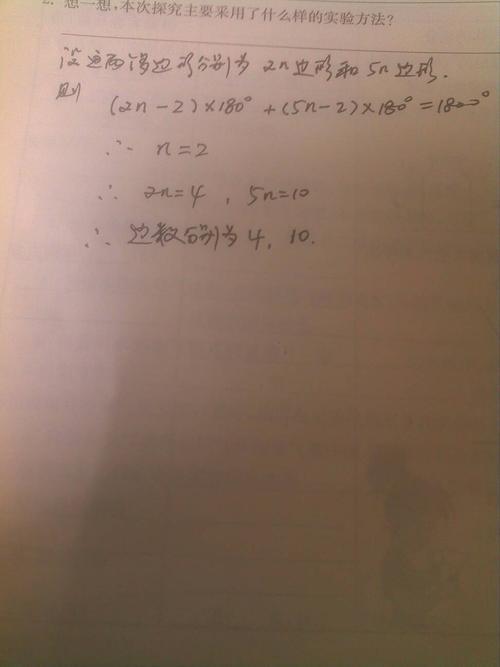 2. 想一想,本次探究主要采用了什么样的实验方法?
设这两多边形分别为 2n边形和 5n边形.
则 (2n-2)×180° + (5n-2)×180° = 1800°
∴ n=2
∴ 2n=4 , 5n=10
∴ 边数分别为 4, 10.